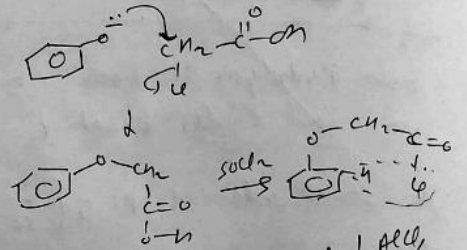 O
O CH₂ – C – OH
Cl
O CH₂
C = O SOCl₂
O – H
O – CH₂ – C = O
H Cl
AlCl₃